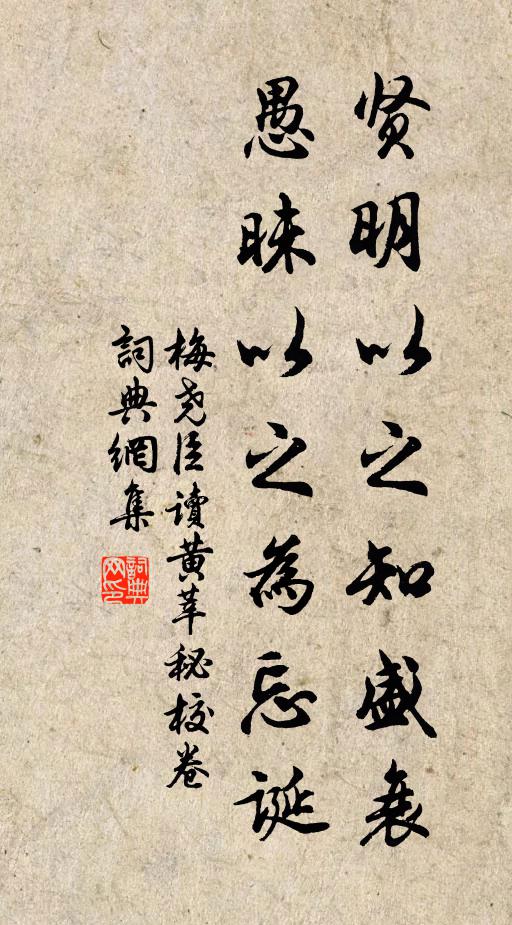 贤明以之知盛衰
愚昧以之為忘誕
梅尧臣讀黄莘秘校卷
詞典網集
詞典网印